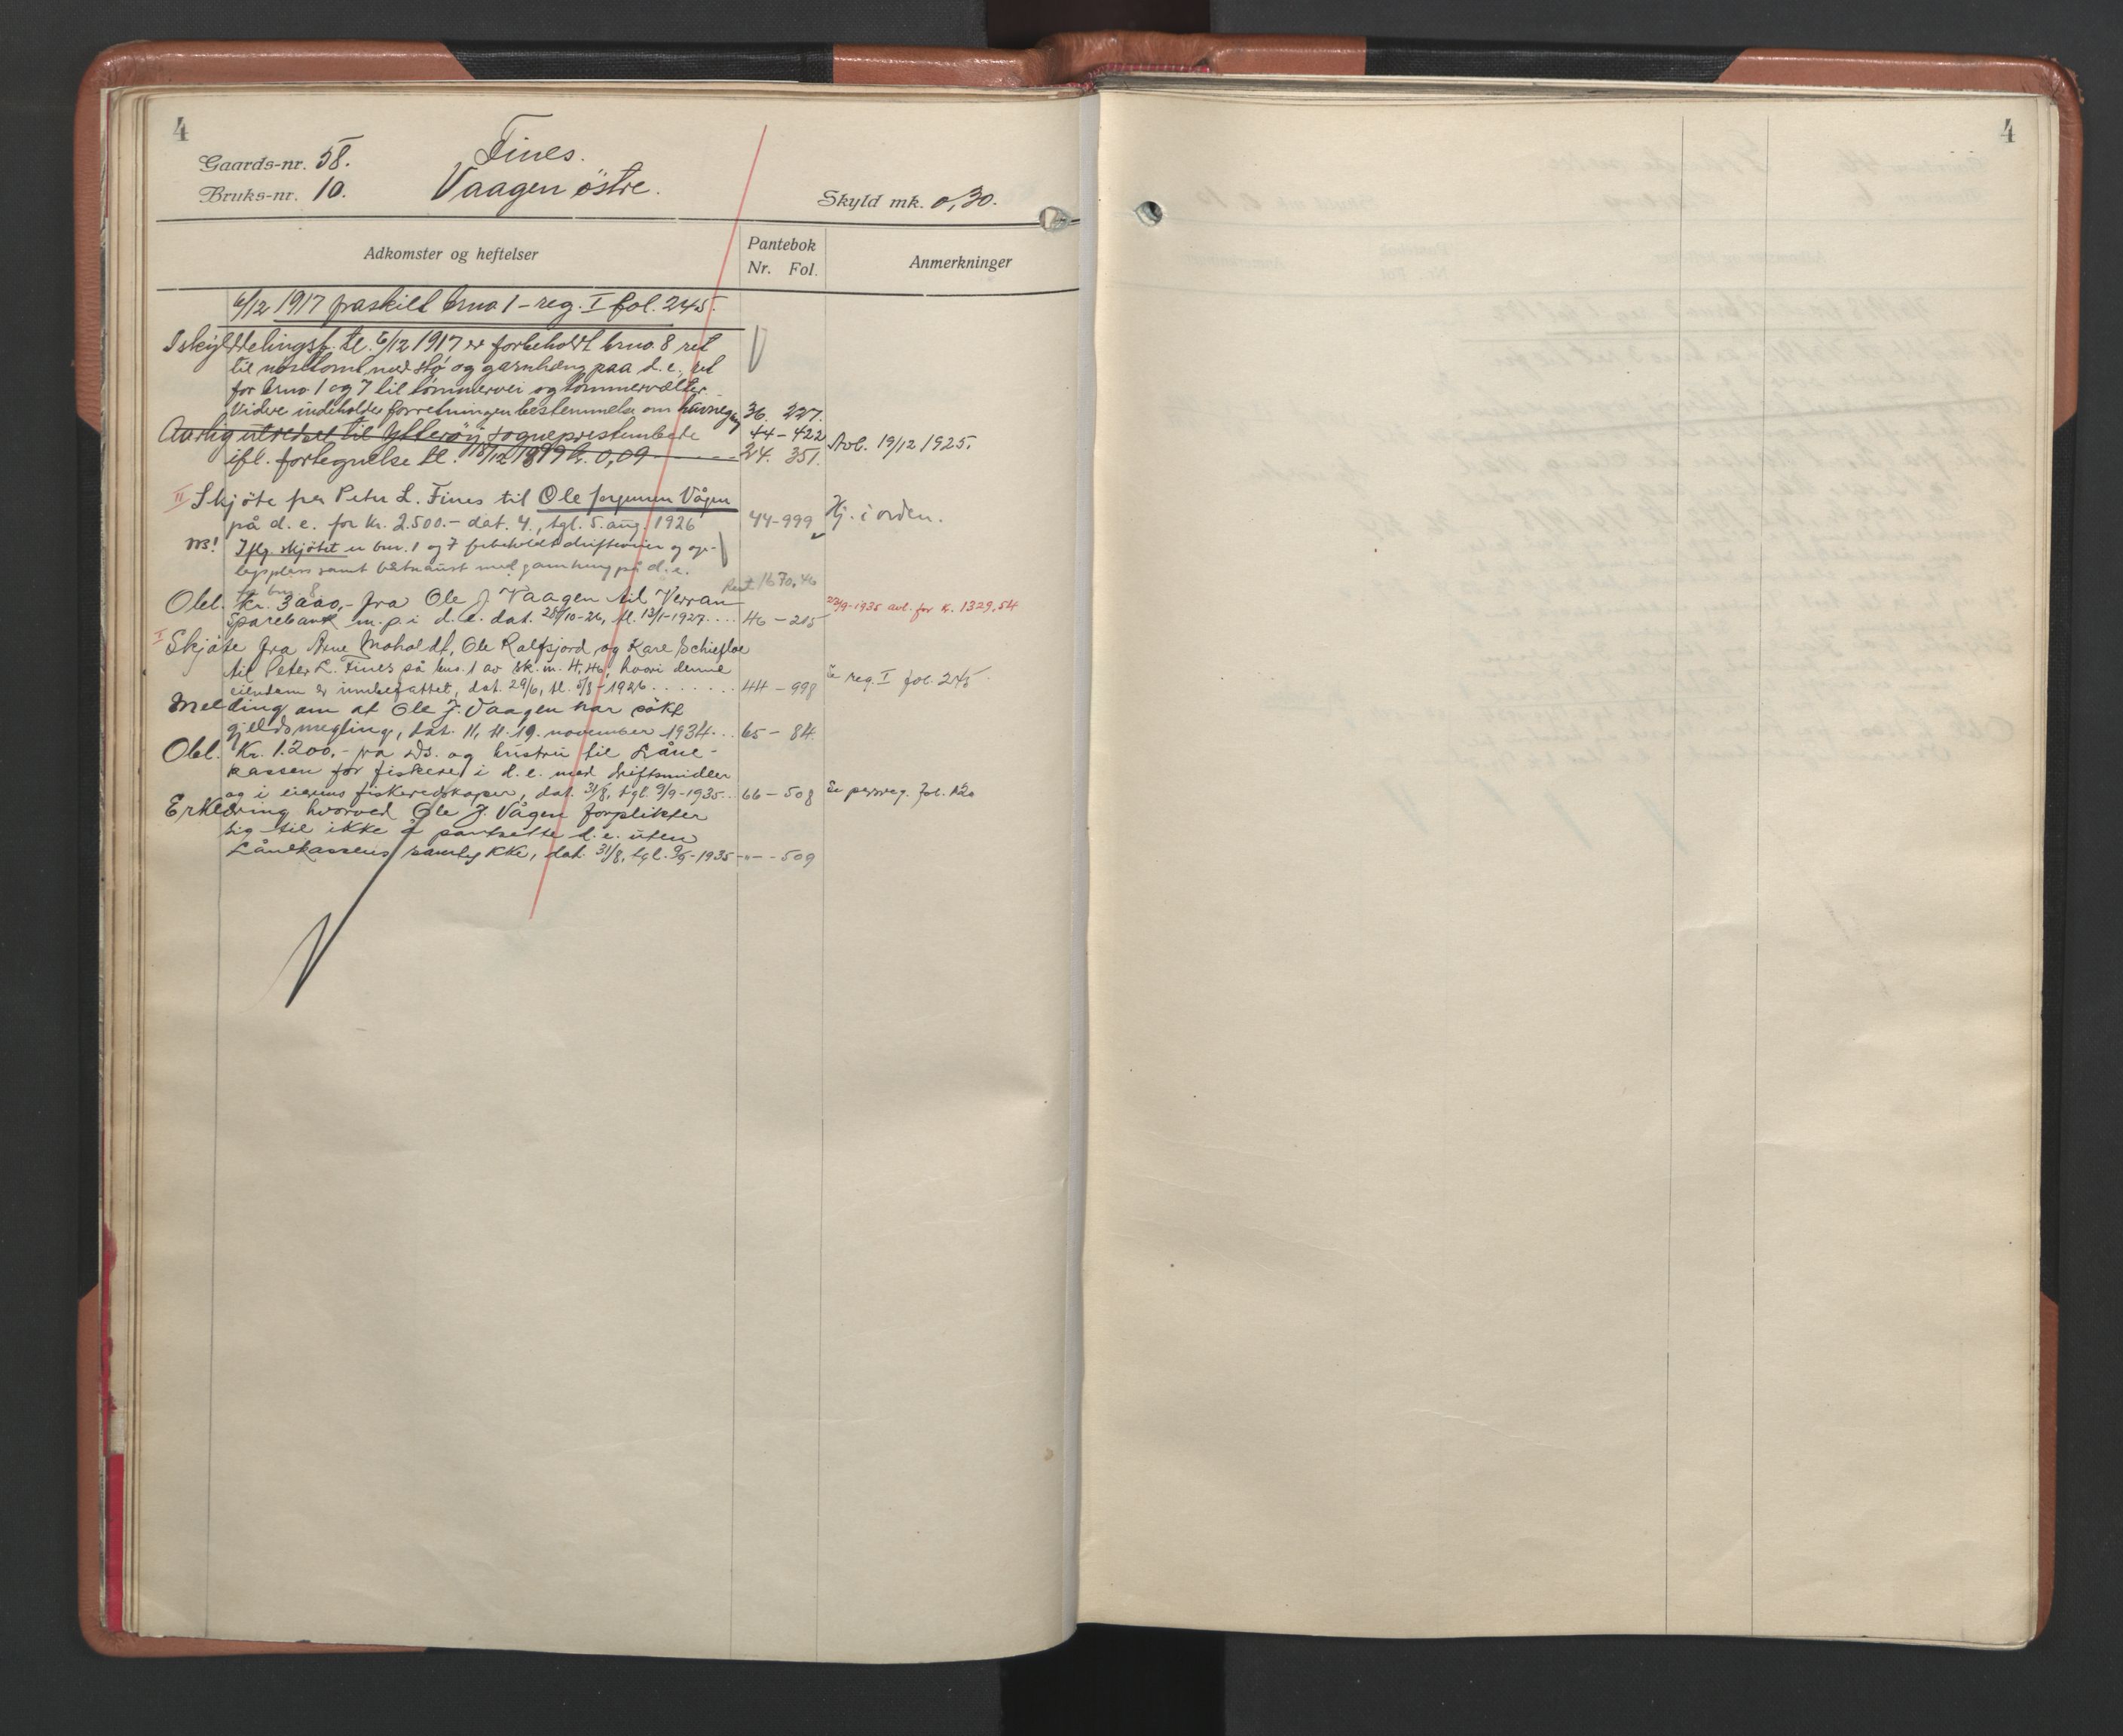 4
Gaards-nr. 58.
Fines.
Bruks-nr. 10.
Vaagen östre.
Skyld mk. 0,30.
Adkomster og heftelser
Pantebok
Nr. Fol.
Anmerkninger
6/12 1917 fraskilt brno 1 - reg. I fol. 245.
I skylddelingsf. tl. 6/12 1917 er forbeholdt brno. 8 ret
til nausttomt med stø og garnhæng paa d. e., ret
for brno. 1 og 7 til tömmervei og tömmervælter.
Videre indeholder forretningen bestemmelse om havnegang 36. 227.
Aarlig utredsel til Ytterøy sogneprestembede 44 - 422 Avl. 19/12 1925.
ifl. fortegnelse tl. 18/12 1899 kr. 0,09 24. 351.
II Skjöte fra Peter L. Fines til Ole Jørgensen Vågen
på d. e. for kr. 2.500.- dat. 4., tgl. 5. aug. 1926 44-999 Hj. i orden.
NB! Iflg. skjötet er bnr. 1 og 7 forbeholdt driftsveier og op-
legsplass samt båtnaust med garnheng på d. e.
for bnr 8
Rest 1670,46
Obl. Kr. 3000,- fra Ole J Vaagen til Verran
Sparebank m. p. i d. e. dat. 28/10-26, tl. 13/1-1927.... 46 - 215 23/9-1935 avl. for kr. 1329,54
I Skjöte fra Arne Moholdt, Ole Kalfsjord og Kare Schiefloe
til Peter L. Fines på bno. 1 av sk. m. 4,46, hvori denne
eiendom er innbefattet, dat. 29/6, tl. 5/8-1926....... 44 - 998 Se reg. I fol. 245.
Melding om at Ole J. Vaagen har søkt
gjeldsmegling, dat. 11, tl. 19. november 1934... 65 - 84
Obl. Kr. 1.200,- fra sds. og hustru til Låne-
kassen for fiskere i d. e. med driftsmidler
og i eierens fiskeredskaper, dat. 31/8, tgl. 9/9-1935.. 66 - 508 Se persreg. fol. 120
Erklæring hvorved Ole J. Vågen forplikter
sig til ikke å pantsette d. e. uten
Lånekassens samtykke, dat. 31/8, tgl. 9/9-1935 -"- - 509
4